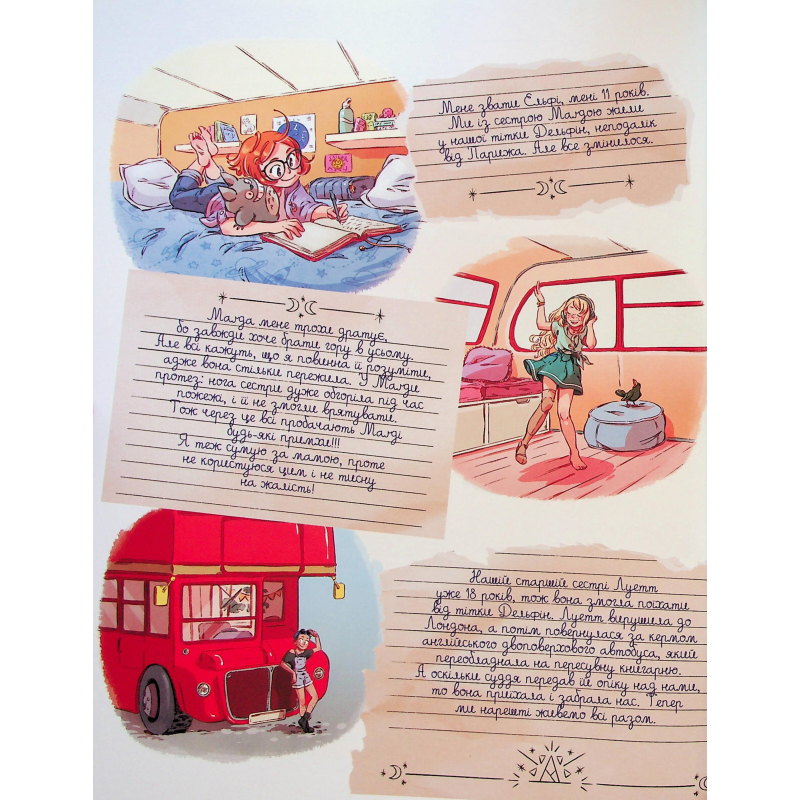 Мене звати Ельфі, мені 11 років.
Ми із сестрою Магдою жили
у нашої тітки Дельфін, неподалік
від Парижа. Але все змінилося.
Магда мене трохи дратує,
бо завжди хоче брати гору в усьому.
Але всі кажуть, що я повинна її розуміти,
адже вона стільки пережила. У Магди
протез: нога сестри дуже обгоріла під час
пожежі, і її не змогли врятувати.
Тож через це всі пробачають Магді
будь-які примхи!!!
Я теж сумую за мамою, проте
не користуюся цим і не тисну
на жалість!
Нашій старшій сестрі Луетт
уже 18 років, тож вона змогла поїхати
від тітки Дельфін. Луетт вирушила до
Лондона, а потім повернулася за кермом
англійського двоповерхового автобуса, який
переобладнала на пересувну книгарню.
А оскільки суддя передав їй опіку над нами,
то вона приїхала і забрала нас. Тепер
ми нарешті живемо всі разом.